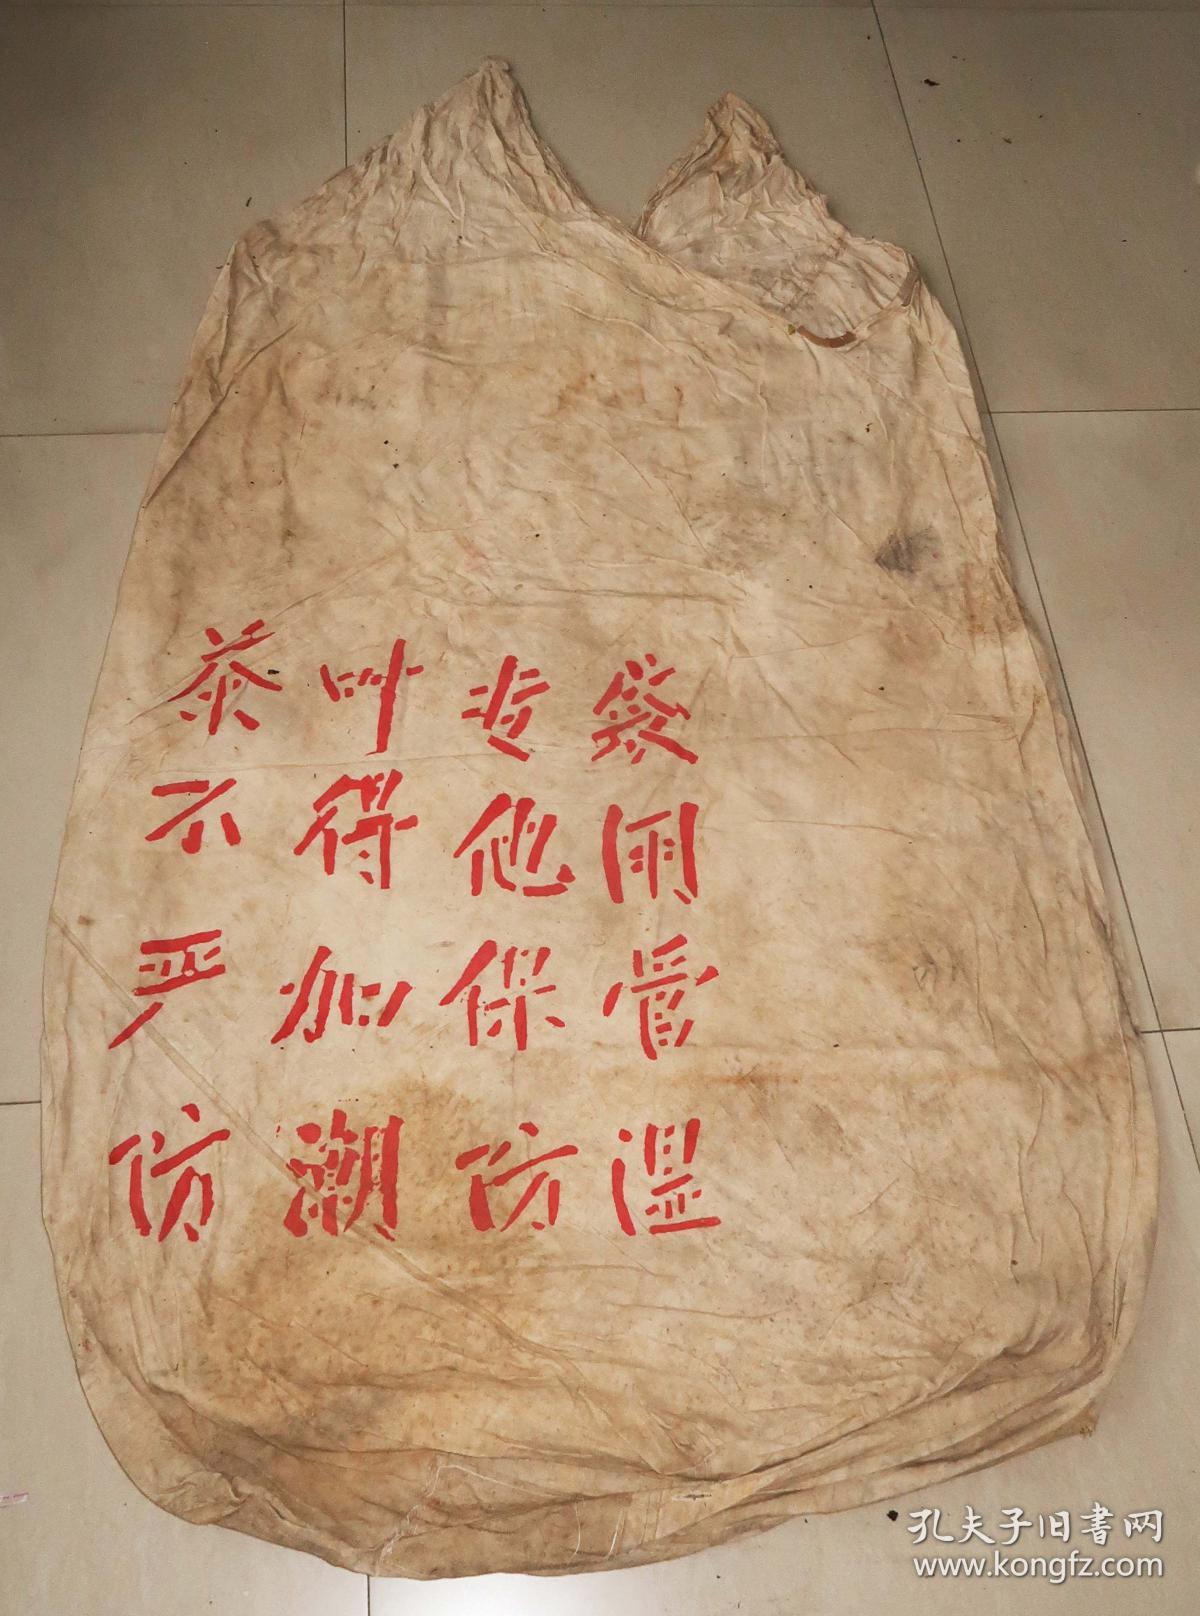 茶叶专袋
不得他用
严加保管
防潮防湿
孔夫子旧書网
www.kongfz.com